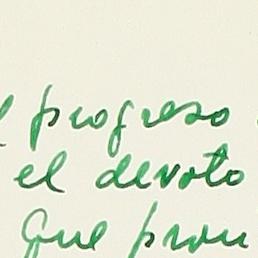 progreso
el devoto
que